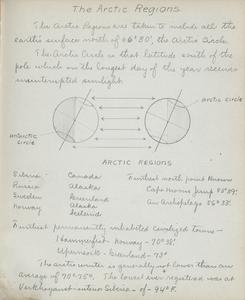 The Arctic Regions.
The Arctic Regions are taken to include all the
earth's surface north of 66° 30', the Arctic Circle.
The Arctic Circle is that latitude south of the
pole which on the longest day of the year receives
uninterrupted sunlight.
arctic circle
antarctic
circle
ARCTIC REGIONS
Siberia Canada Farthest north point known
Russia Alaska Cape Morris Jesup 83°39'.
Sweden Greenland
Norway Alaska
Iceland
Farthest permanently inhabited civilized towns -
Hammerfest - Norway - 70°38'.
Upernavik - Greenland - 73°
The arctic winter is generally not lower than an
average of
The lowest ever registered was at
Verkhoyansk - Siberia - of - 94° F.